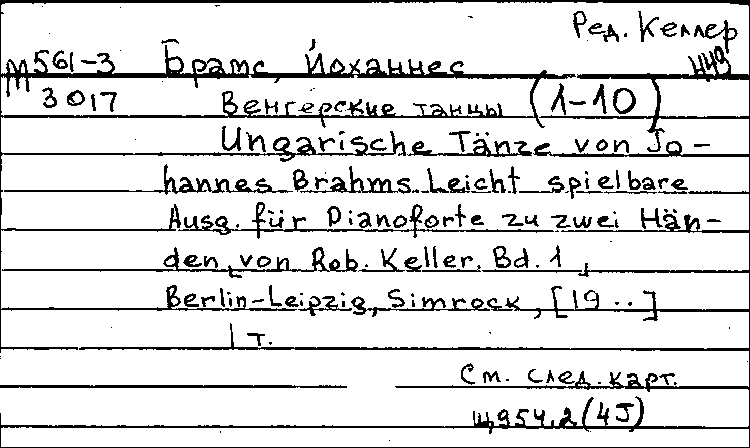 Ред. Келлер
М 561-3 Брамс, Йоханнес
3017 Венгерские танцы (1-10)
Ungarische Tänze von Jo-
hannes Brahms. Leicht spielbare
Ausg. für Pianoforte zu zwei Hän-
den von Rob. Keller. Bd. 1
Berlin-Leipzig, Simrock, [19 ..]
1 т.
См. след. карт.
Щ954.2(4J)